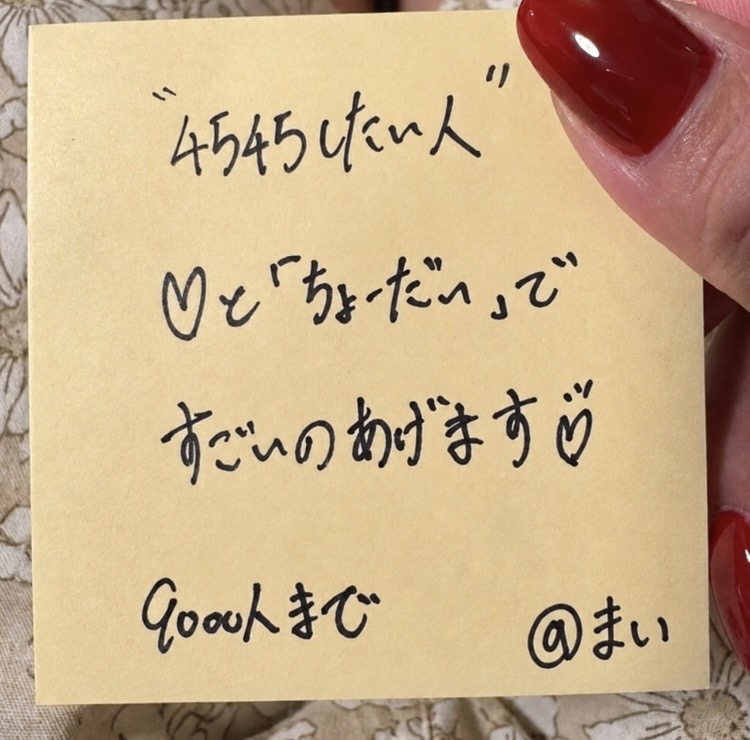 “4545したい人”
♡と「ちょーだい」で
すごいのあげます♡
9000人まで
@まい